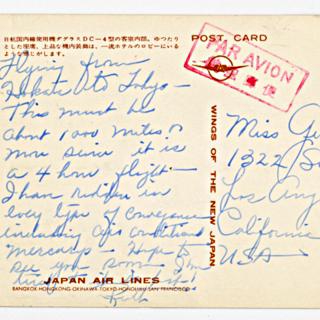 日航国内線使用機ダグラスDC-4型の客室内部。ゆつたり
とした座席、上品な機内装飾は、一流ホテルのロビーにいる
ような感じがします。
POST CARD
PAR AVION
航空郵便
Flying from
to Tokyo-
This must be
about 1000 miles or
more since it is
a 4 hour flight-
I have ridden in
every type of conveyance
including
Hope to
see you soon-
Ruth
WINGS OF THE NEW JAPAN
Miss
1322
Los Ang
California
USA-
JAPAN AIR LINES
BANGKOK·HONGKONG·OKINAWA·TOKYO·HONOLULU·SAN FRANCISCO